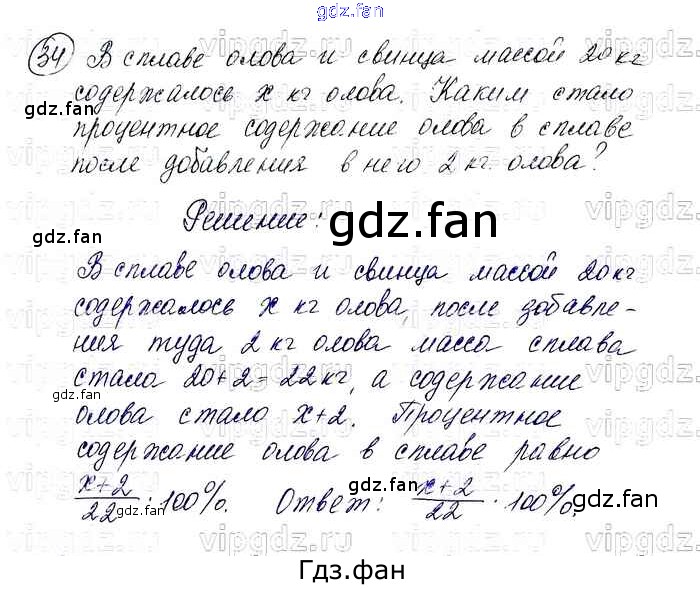 gdz.fan
34 В сплаве олова и свинца массой 20 кг
содержалось x кг олова. Каким стало
процентное содержание олова в сплаве
после добавления в него 2 кг. олова?
gdz.fan
Решение:
gdz.fan
gdz.fan
В сплаве олова и свинца массой 20 кг
содержалось x кг олова, после добавле-
ния туда 2 кг олова масса сплава
стала 20+2=22 кг, а содержание
gdz.fan
олова стало x+2. Процентное
содержание олова в сплаве равно
x+2/22 · 100%. Ответ: x+2/22 · 100%.
gdz.fan
gdz.fan
Гдз.фан